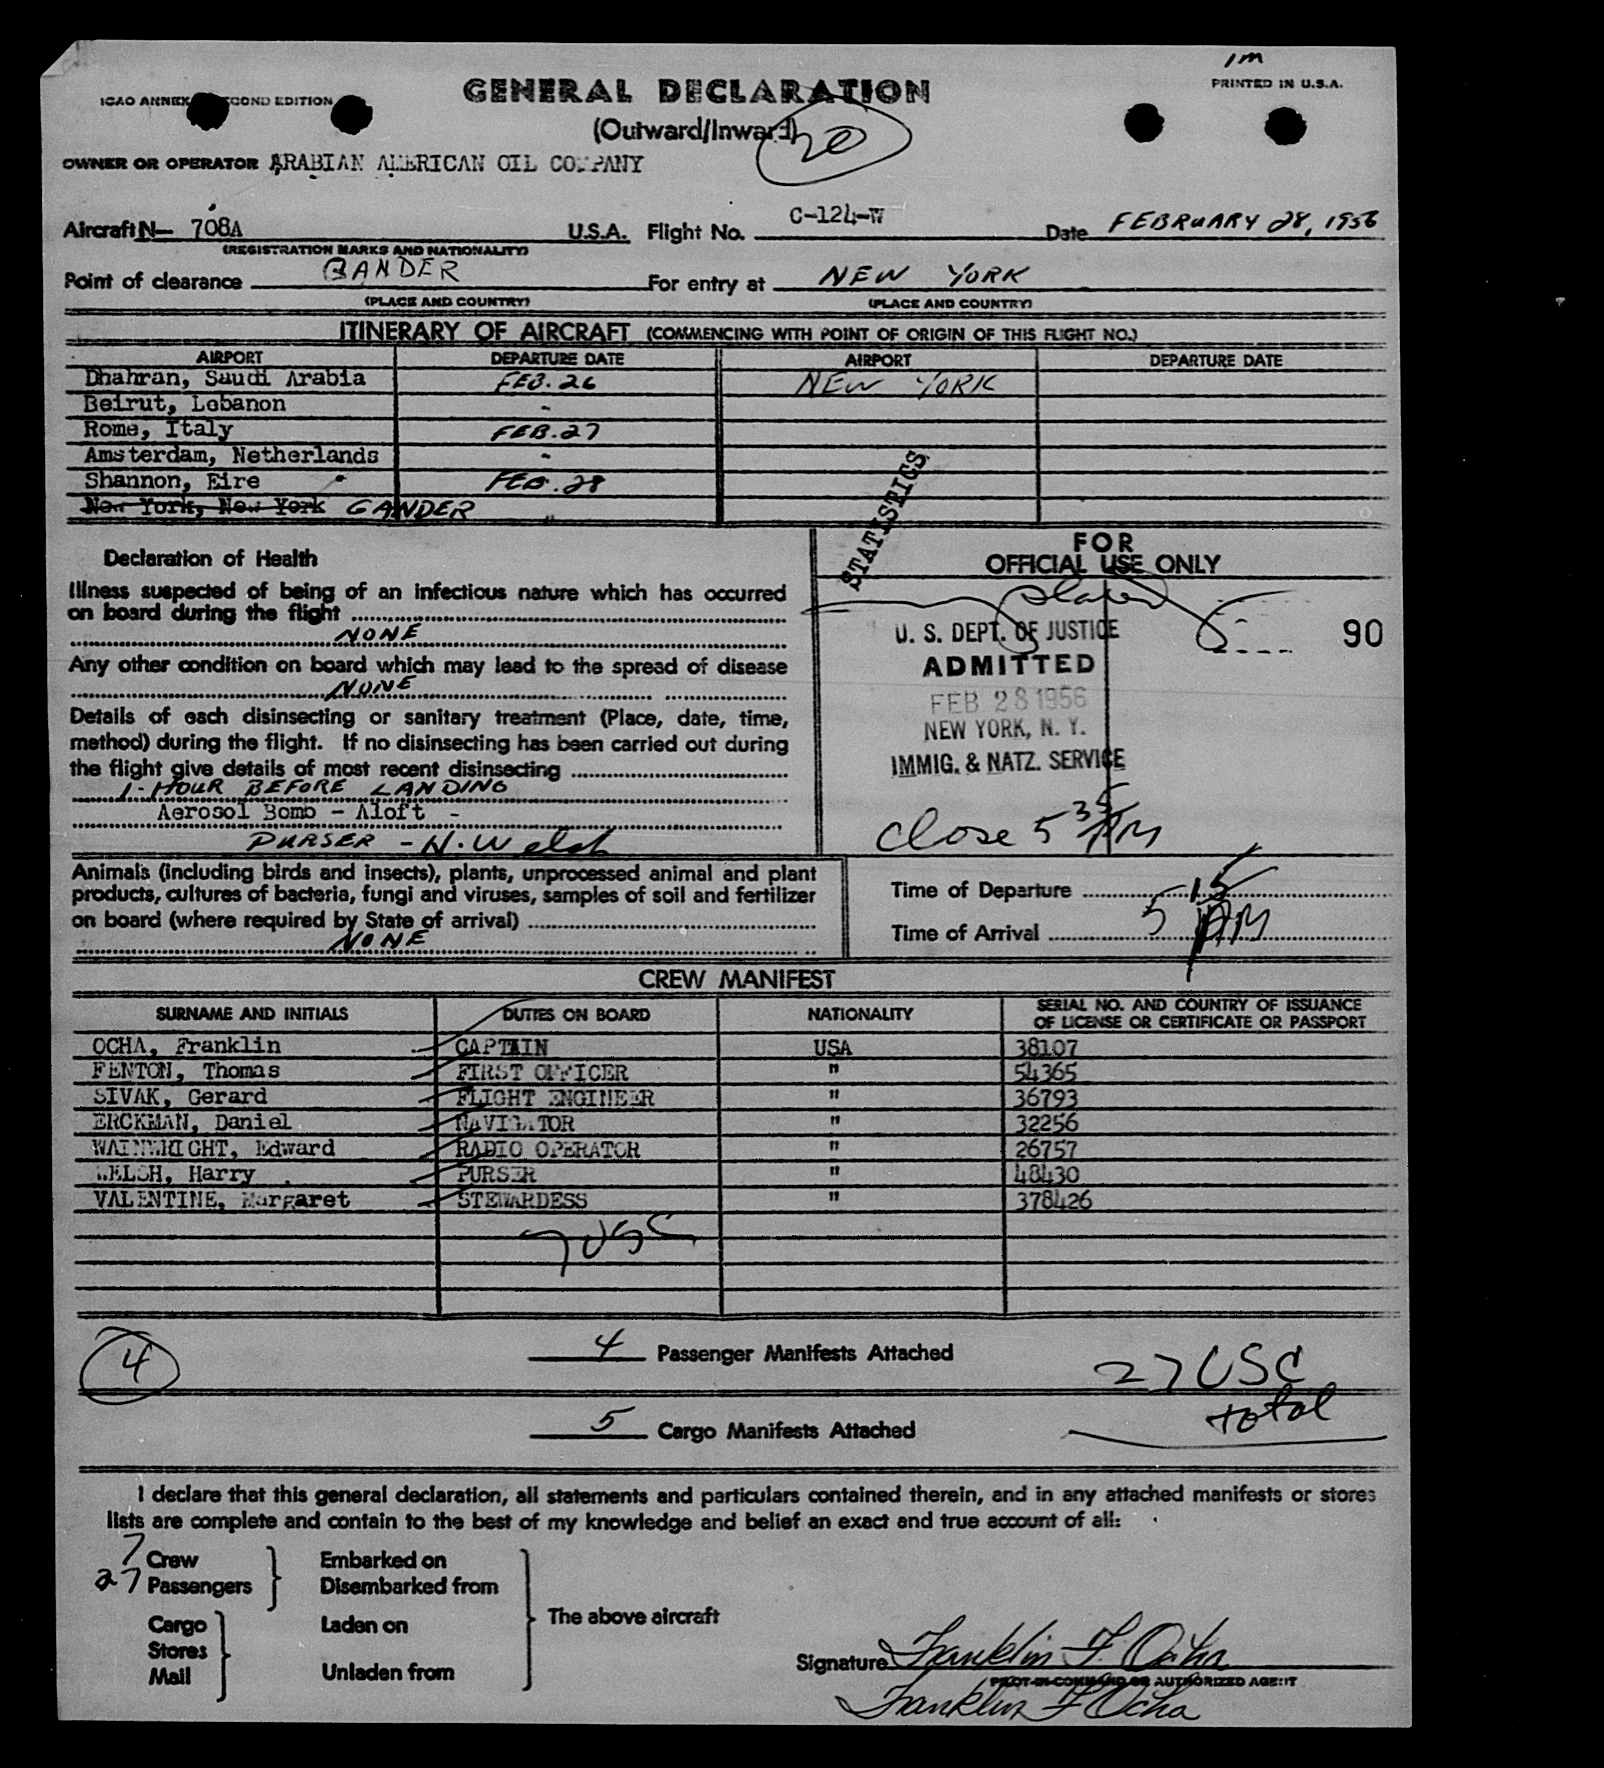 1M
PRINTED IN U.S.A.
ICAO ANNEX SECOND EDITION
GENERAL DECLARATION
(Outward/Inward)
20
OWNER OR OPERATOR ARABIAN AMERICAN OIL COMPANY
Aircraft N- 708A U.S.A. Flight No. C-124-W Date FEBRUARY 28, 1956
(REGISTRATION MARKS AND NATIONALITY)
Point of clearance GANDER For entry at NEW YORK
(PLACE AND COUNTRY) (PLACE AND COUNTRY)
ITINERARY OF AIRCRAFT (COMMENCING WITH POINT OF ORIGIN OF THIS FLIGHT NO.)
AIRPORT DEPARTURE DATE AIRPORT DEPARTURE DATE
Dhahran, Saudi Arabia FEB. 26 NEW YORK
Beirut, Lebanon -
Rome, Italy FEB. 27
Amsterdam, Netherlands -
Shannon, Eire FEB. 28
New York, New York GANDER "
STATISTICS
FOR
OFFICIAL USE ONLY
Declaration of Health
Illness suspected of being of an infectious nature which has occurred
on board during the flight
NONE
Any other condition on board which may lead to the spread of disease
NONE
Details of each disinsecting or sanitary treatment (Place, date, time,
method) during the flight. If no disinsecting has been carried out during
the flight give details of most recent disinsecting
1-HOUR BEFORE LANDING
Aerosol Bomb - Aloft -
PURSER - H. Welsh
U. S. DEPT. OF JUSTICE
ADMITTED
FEB 28 1956
NEW YORK, N. Y.
IMMIG. & NATZ. SERVICE
90
Close 5 35 AM
Animals (including birds and insects), plants, unprocessed animal and plant
products, cultures of bacteria, fungi and viruses, samples of soil and fertilizer
on board (where required by State of arrival)
NONE
Time of Departure
Time of Arrival 5 15 AM
CREW MANIFEST
SURNAME AND INITIALS DUTIES ON BOARD NATIONALITY SERIAL NO. AND COUNTRY OF ISSUANCE
OF LICENSE OR CERTIFICATE OR PASSPORT
OCHA, Franklin CAPTAIN USA 38107
FENTON, Thomas FIRST OFFICER " 54365
SIVAK, Gerard FLIGHT ENGINEER " 36793
ERCKMAN, Daniel NAVIGATOR " 32256
WAINWRIGHT, Edward RADIO OPERATOR " 26757
WELSH, Harry PURSER " 48430
VALENTINE, Margaret STEWARDESS " 378426
7 USC
4
4 Passenger Manifests Attached
27 USC
total
5 Cargo Manifests Attached
I declare that this general declaration, all statements and particulars contained therein, and in any attached manifests or stores
lists are complete and contain to the best of my knowledge and belief an exact and true account of all:
7 Crew Embarked on
27 Passengers Disembarked from
The above aircraft
Cargo Laden on
Stores
Mail Unladen from
Signature Franklin F. Ocha
PILOT-IN-COMMAND OR AUTHORIZED AGENT
Franklin F Ocha